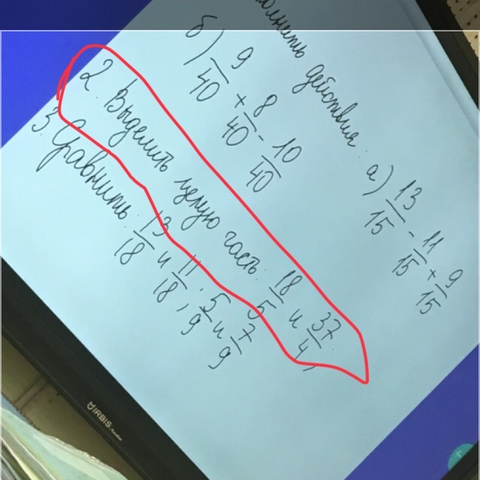 полнить действия: а) 13/15 - 11/15 + 9/15
б) 9/40 + 8/40 - 10/40
2. Выделить целую часть: 18/5 и 37/4,
3 Сравнить: 13/18 и 11/18, 5/9 и 7/9
IRBIS